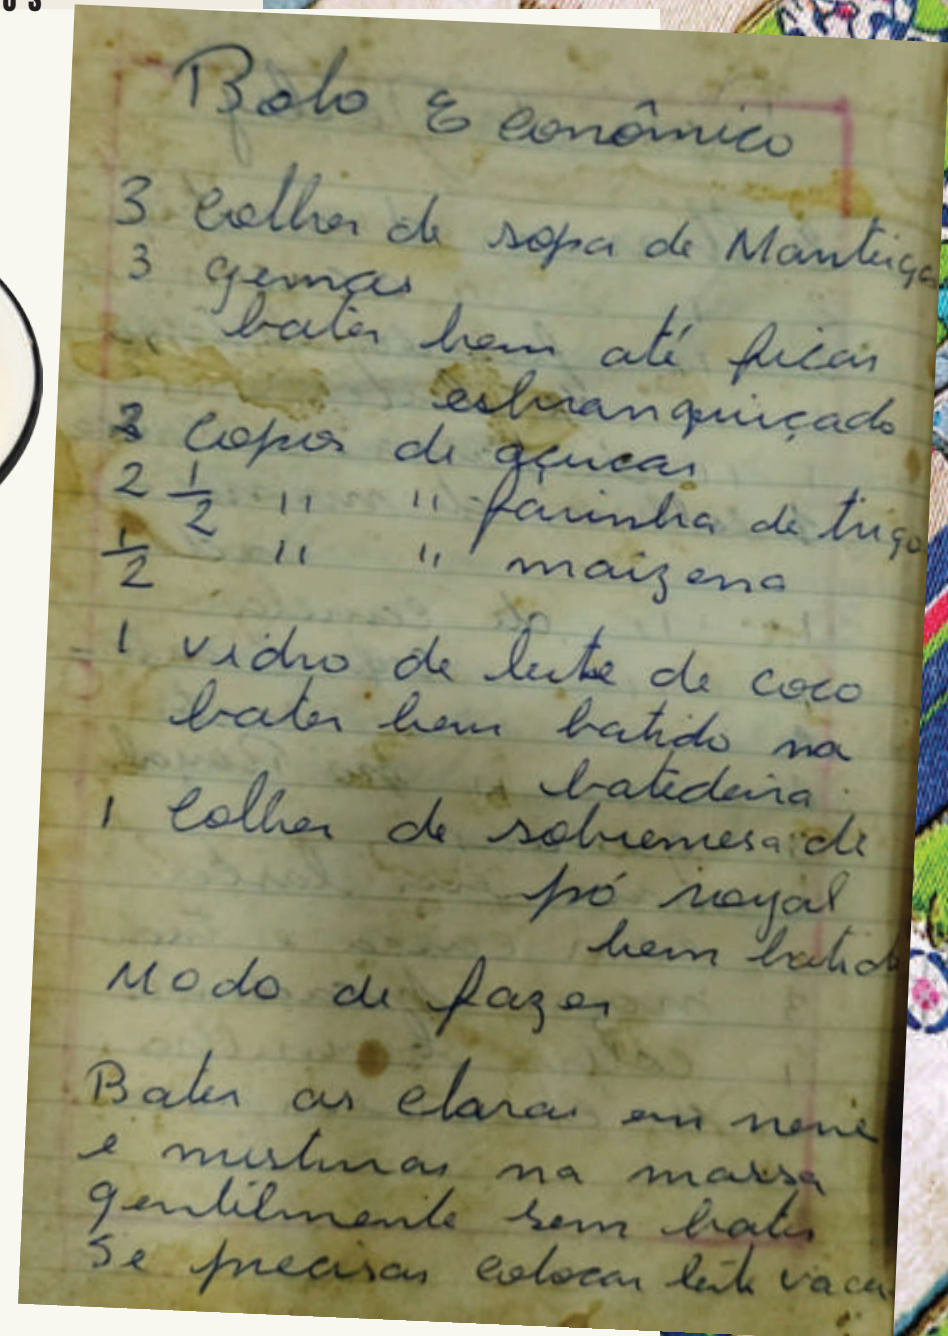 Bolo Econômico
3 Colher de sopa de Manteiga
3 gemas
bater bem até ficar
esbranquiçado
copos de açucar
2 1/2 " " farinha de trigo
1/2 " " maizena
1 vidro de leite de coco
bater bem batido na
batedeira
1 Colher de sobremesa de
pó royal
bem batido
Modo de fazer
Bater as claras em neve
e misturar na massa
gentilmente sem bater
Se precisar colocar leite vaca